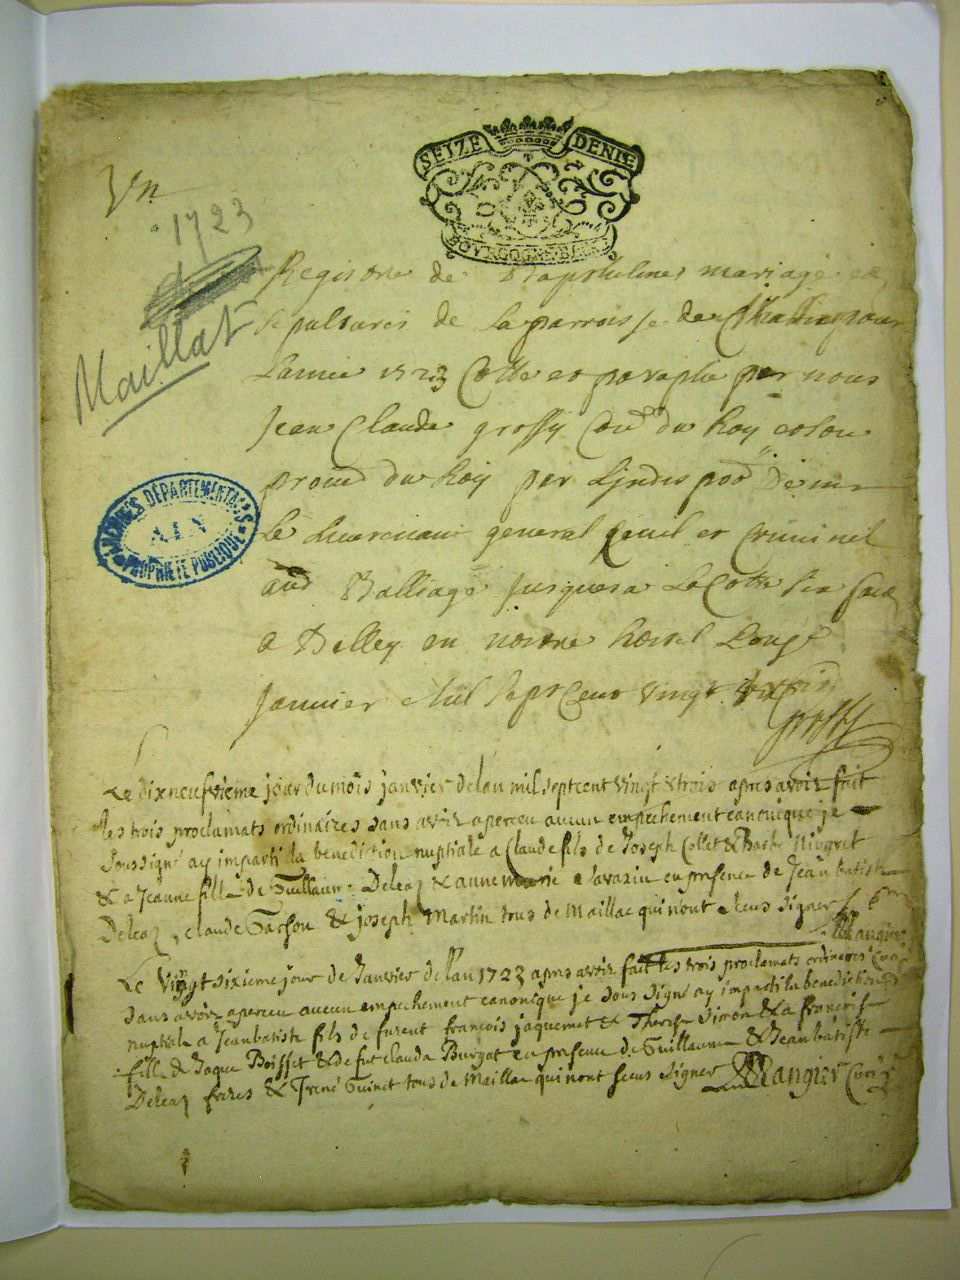 SEIZE DENIE
BOURGOGNE BRESSE
Vn
1723
Maillat
ARCHIVES DÉPARTEMENTALES
AIN
PROPRIÉTÉ PUBLIQUE
Registre de Baptesmes mariage et
Sepultures de la parroisse de pour
Lannee 1723 Cotte et paraphe par nous
Jean Claude grossy Con.er du Roy
du Roy par
Le Lieutenant general Civil et Criminel
aud Balliage Jusques a Le Cotte
a Belley en nostre hostel
Janvier Mil Sept Cent vingt trois
Le dixneufvieme jour du mois janvier de lan mil sept cent vingt & trois apres avoir fait
les trois proclamats ordinaires sans avoir aperceu aucun empechement canonique je
soussigné ay imparti la benediction nuptiale a Claude fils de Joseph Collet &
& a Jeanne fille de Guillaume Deleaz & anne marie en presence de Jean batiste
Deleaz, claude & joseph Martin tous de Maillac qui nont sceus signer
Mangier
Le vingt sixieme jour de Janvier de lan 1723 apres avoir fait les trois proclamats ordinaires
sans avoir aperceu aucun empechement canonique je sous signé ay imparti la benediction
nuptiale a Jean batiste fils de furent françois jaquemet & Therese Simon & a françoise
fille de Jaque Boisset & de fut Clauda Burgat en presence de Guillaume & Jean batiste
Deleaz freres & Irené Guinet tous de Maillac qui nont sceus signer Mangier Curé